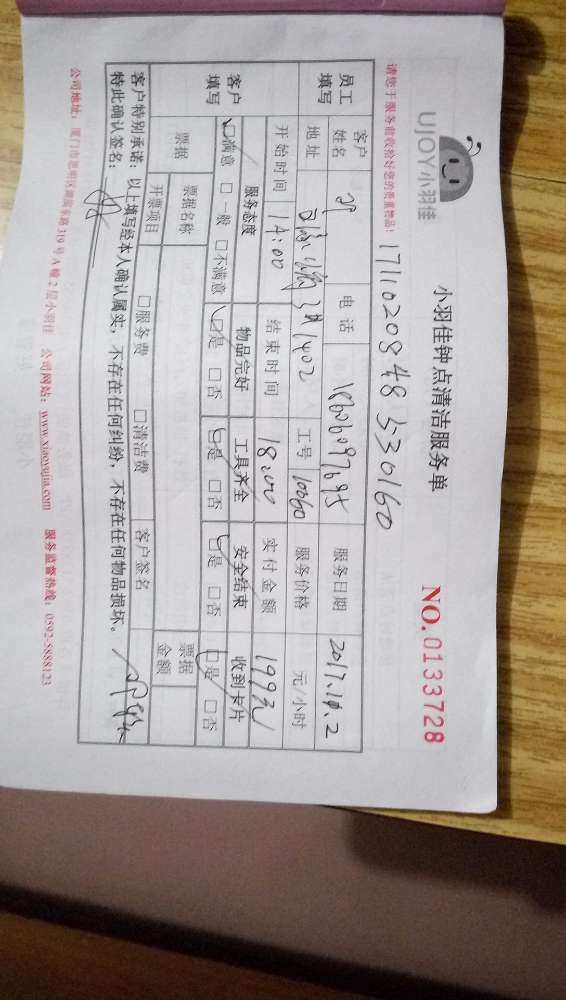 UJOY小羽佳
小羽佳钟点清洁服务单
NO.0133728
请您于服务前收拾好您的贵重物品: 1711020848530160
员工填写 客户姓名 电话 服务日期 2017.11.2
地址 1402 工号 10060 服务价格 元/小时
开始时间 14:00 结束时间 18:00 实付金额
客户填写 服务态度 物品完好 工具齐全 安全结束 收到卡片
☑满意 □一般 □不满意 ☑是 □否 ☑是 □否 ☑是 □否 ☑是 □否
票据 票据名称 票据金额
开票项目 □服务费 □清洁费 客户签名
客户特别承诺:以上填写经本人确认属实,不存在任何纠纷,不存在任何物品损坏。
特此确认签名:
公司地址:厦门市思明区湖滨东路319号A幢2层小羽佳 公司网站:www.xiaoyujia.com 服务监督热线:0592-5888123